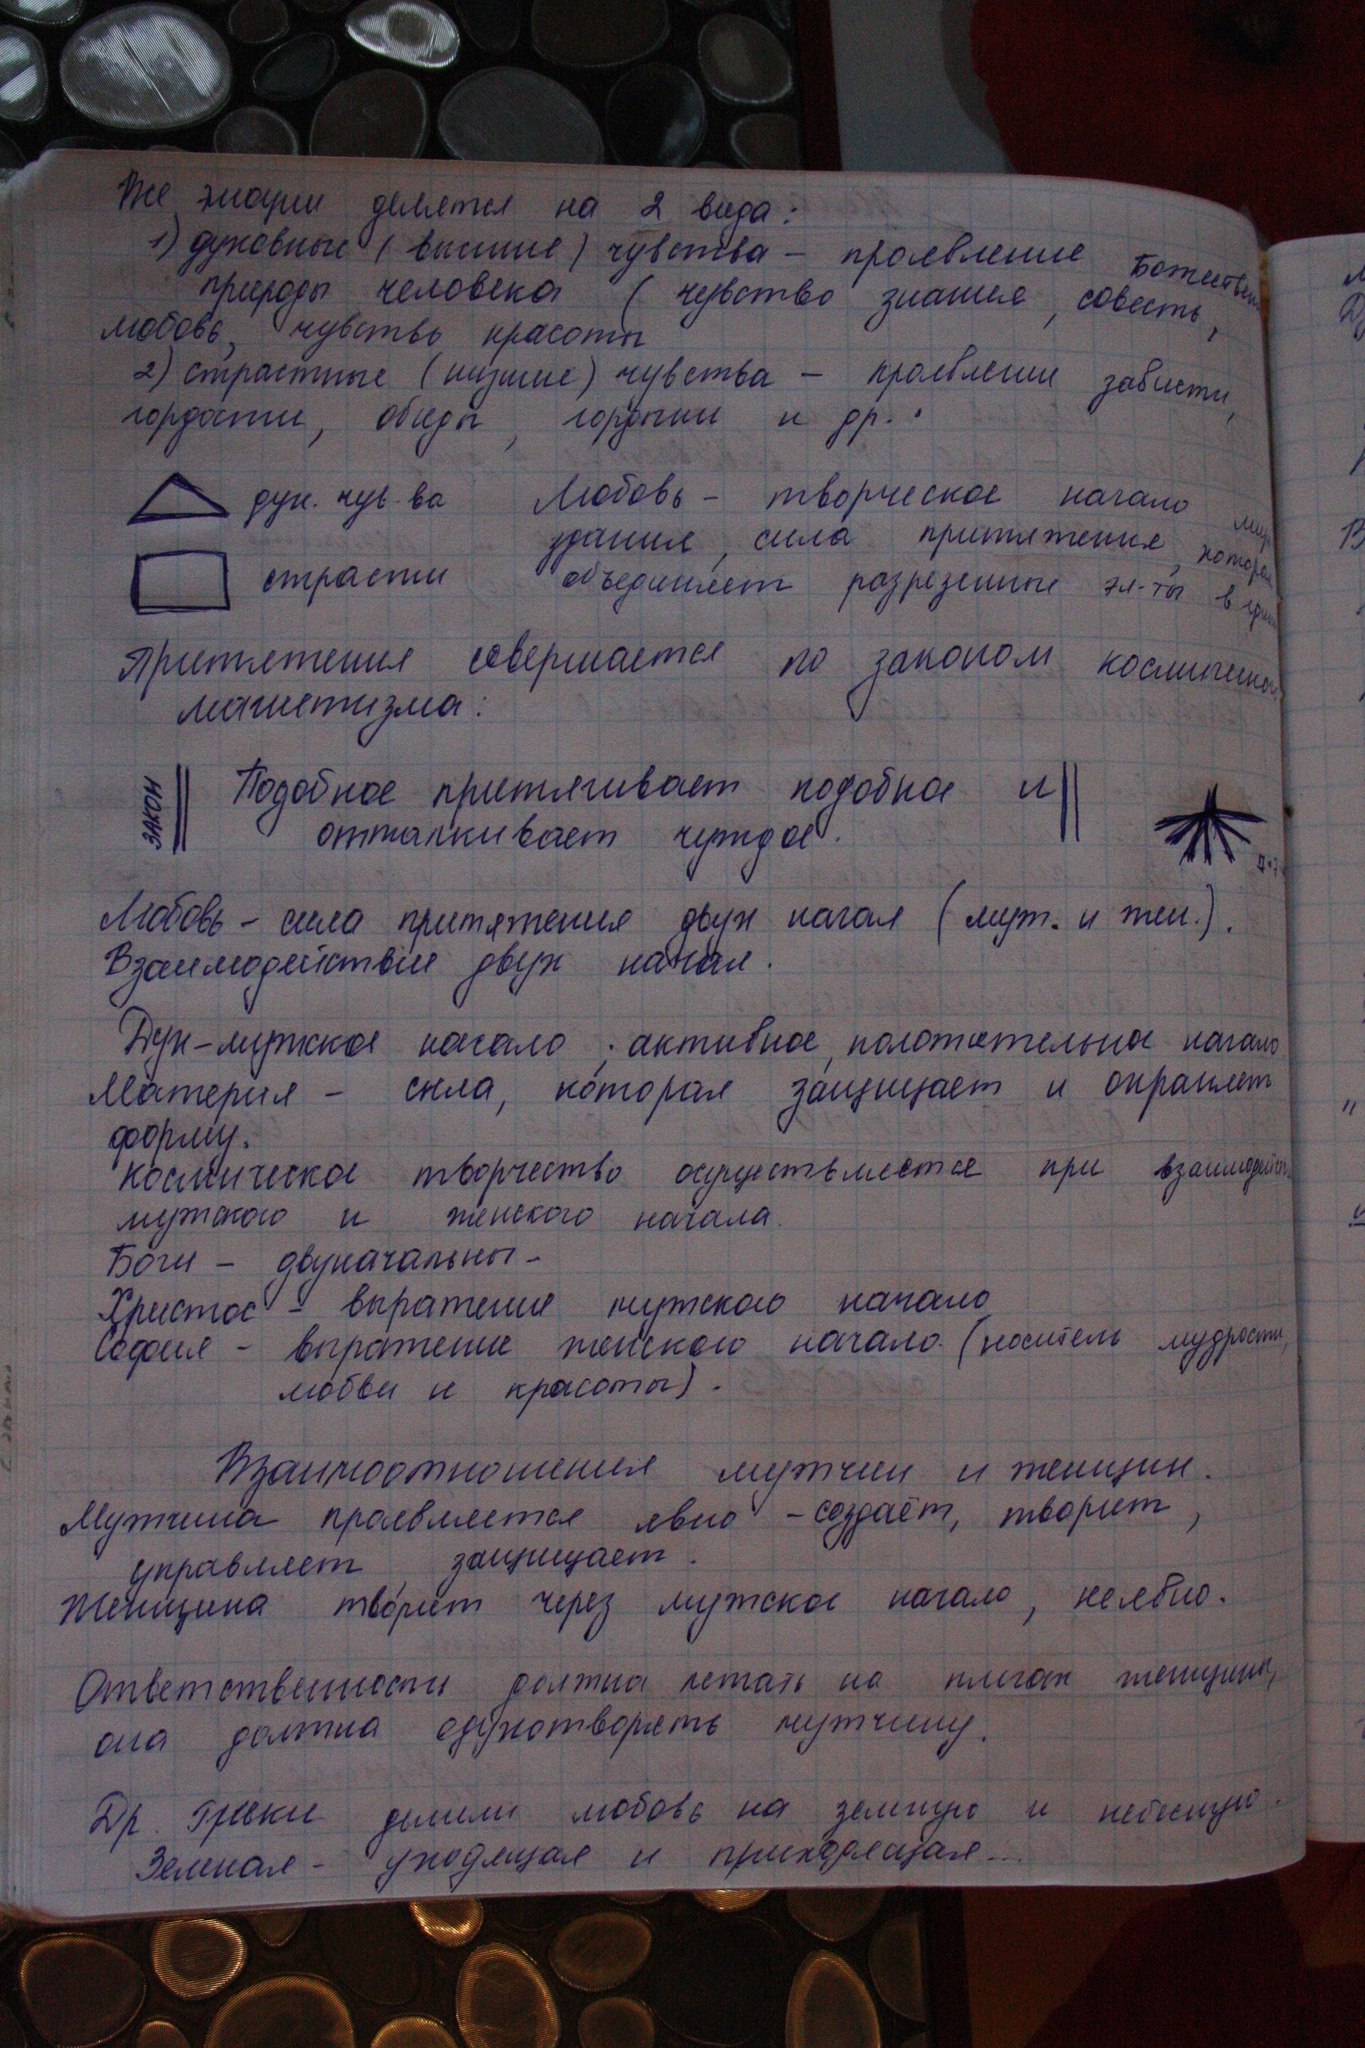 Все эмоции делятся на 2 вида:
1) духовные (высшие) чувства – проявление Божествен
природы человека (чувство знания, совесть,
любовь, чувство красоты
2) страстные (низшие) чувства – проявление зависти,
гордости, обиды, гордыни и др.
дух. чув-ва Любовь – творческое начало
здания, сила притяжения, которая
страсти объединяет разрезенные эл-ты в
Притяжения совершается по законом космическо
магнетизма:
ЗАКОН Подобное притягивает подобное и
отталкивает чуждое.
Любовь – сила притяжения двух начал (муж. и жен.).
Взаимодействие двух начал.
Дух – мужское начало; активное, положительное начало
Материя – сила, которая защищает и охраняет
форму.
Космическое творчество осуществляется при взаимодейст
мужского и женского начала.
Боги – двуначальны –
Христос – выражение мужского начало
София – выражение женского начало (носитель мудрости,
любви и красоты).
Взаимоотношения мужчин и женщин.
Мужчина проявляется явно – создаёт, творит,
управляет защищает.
Женщина творит через мужское начало, неявно.
Ответственность должна лежать на плечах женщины,
она должна одухотворять мужчину.
Др. Греки делили любовь на земную и небесную.
Земная – уходящая и приходящая...